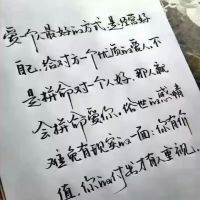 爱一个人最好的方式,是经营好
自己,给对方一个优质的爱人,不
是拼命对一个人好,那人就
会拼命爱你。俗世的感情
难免有现实的一面:你有价
值,你的付出才有重视。